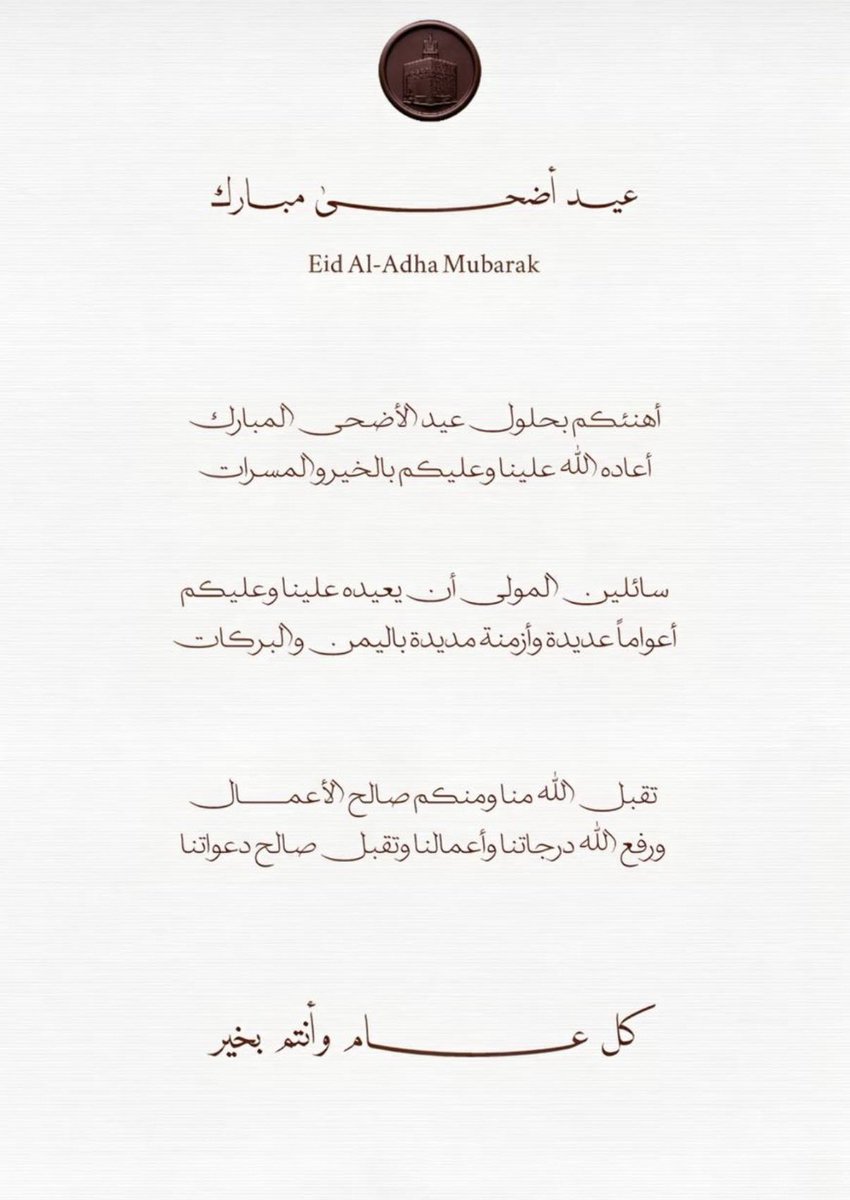 عيد أضحى مبارك
Eid Al-Adha Mubarak
أهنئكم بحلول عيد الأضحى المبارك
أعاده الله علينا وعليكم بالخير والمسرات
سائلين المولى أن يعيده علينا وعليكم
أعواماً عديدة وأزمنة مديدة باليمن والبركات
تقبل الله منا ومنكم صالح الأعمال
ورفع الله درجاتنا وأعمالنا وتقبل صالح دعواتنا
كل عام وأنتم بخير